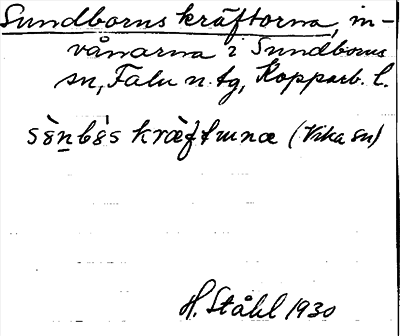 Sundborns kräftorna, in-
vånarna i Sundborns
sn, Falu n. tg, Kopparb. l.
(Vika sn)
H. Ståhl 1930